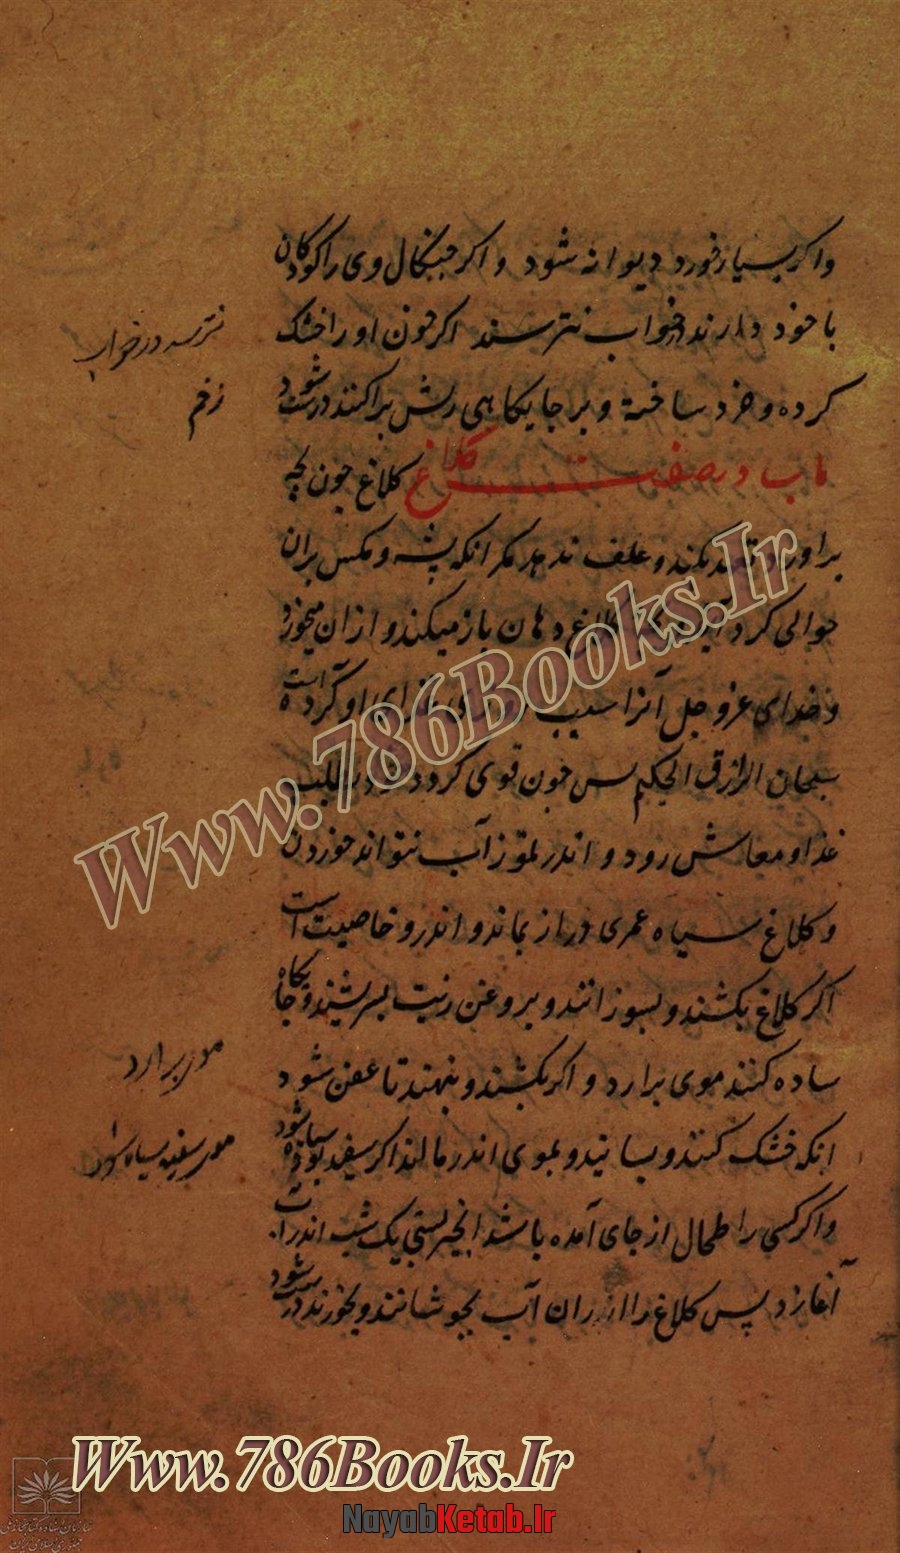 واکر بسیار خورد دیوانه شود واکر چنکال وی را کودکان
با خود دارند در خواب نترسند اکر خون او را خشک
نترسد در خواب
کرده و خرد ساخته و بر جایکاهی ریش براکنند درست شود
زخم
باب در صفت کلاغ کلاغ چون بچه
براورد نکند و علف ندهد مکر انکه پشه و مکس بران
حوالی کرد کلاغ دهان باز میکند و از ان میخورد
و خدای عزوجل آنرا سبب او کرده است
سبحان الرازق الحکیم پس چون قوی کردد
غذا و معاش رود و اندر تموز آب نتواند خوردن
و کلاغ سیاه عمری دراز بماند و اندرو خاصیت است
اکر کلاغ بکشند و بسوزانند و بروغن زیت بسریشند و جایکاه
ساده کنند موی برارد و اکر بکشند و بنهند تا عفن شود
موی برارد
انکه خشک کنند و بسایند و بموی اندر مالند اکر سفید بود سیاه شود
موی سفید سیاه شود
واکر کسی را طحال از جای آمده باشد انجیر بستی یک شب اندر آب
آغازد پس کلاغ را از ران آب بجوشانند و بخورند درست شود
Www.786Books.Ir
Www.786Books.Ir
NayabKetab.Ir